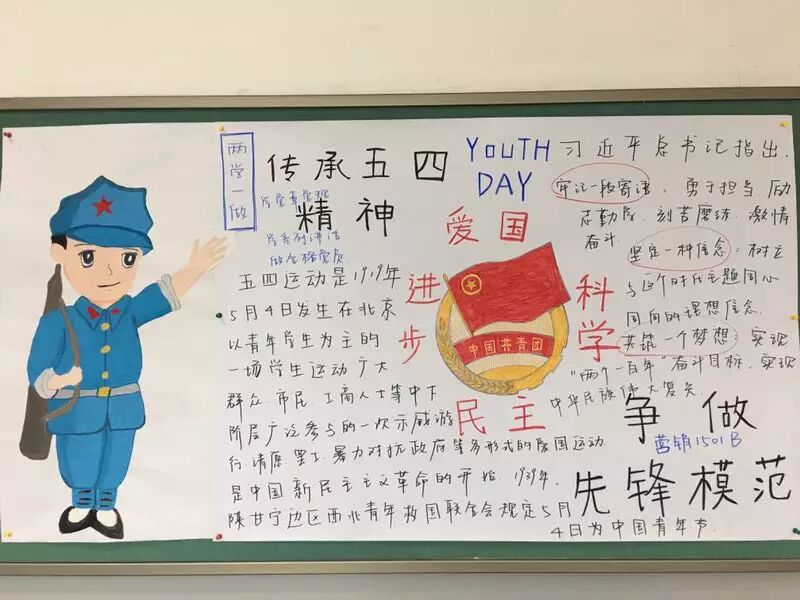 两学一做
传承五四
精神
学党章党规
学系列讲话
做合格党员
YOUTH
DAY
爱国
进步
科学
民主
中国共青团
五四运动是1919年
5月4日发生在北京
以青年学生为主的
一场学生运动广大
群众、市民、工商人士等中下
阶层广泛参与的一次示威游
行、请愿、罢工、暴力对抗政府等多形式的爱国运动
是中国新民主主义革命的开始。1939年,
陕甘宁边区西北青年救国联合会规定5月
4日为中国青年节.
习近平总书记指出,
牢记一段寄语,勇于担当.励
志勤学.刻苦磨练.激情
奋斗.
坚定一种信念:树立
与这个时代主题同心
同向的理想信念.
共筑一个梦想:实现
“两个一百年”奋斗目标,实现
中华民族伟大复兴
争做
营销1501B
先锋模范